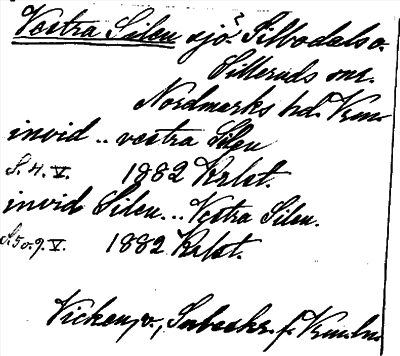 Vestra Silen sjö? Silbodals o.
Silleruds snr.
Nordmarks hd. Vrm.
invid .. vestra Silen
S. 4. V. 1882 Krlst.
invid Silen... Vestra Silen.
S. 5 o. 9. V. 1882 Krlst.
Vicken, v., f. Vrm. ln.